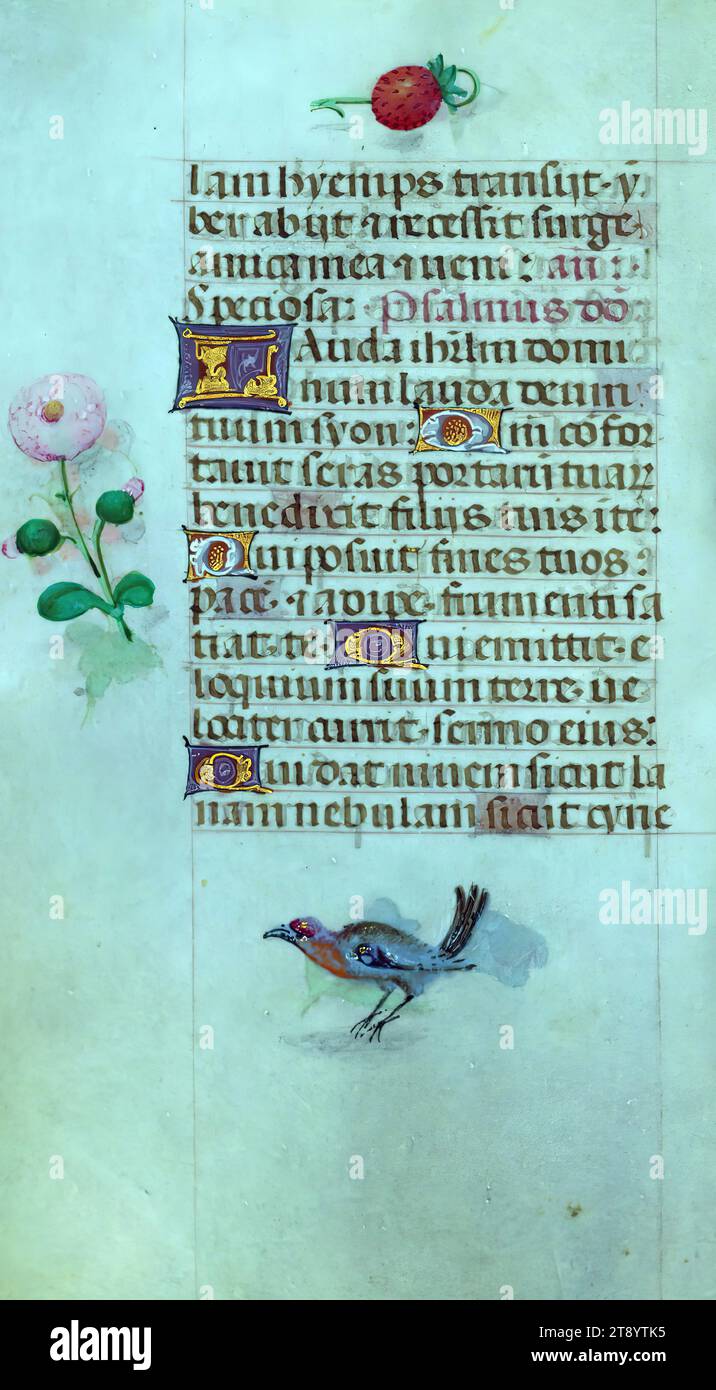 Iam hyemps transijt· y
ber abijt ⁊ recessit surge
amica mea ⁊ ueni: an̄:·
Speciosa: Psalmus dd̄
Lauda ihrl̄m domi
num lauda deum
tuum syon: Qm̄ cōfor
tauit seras portarū tuarꝝ
benedixit filijs tuis ī te:
Qui posuit fines tuos :
pacē· ⁊ adipe· frumenti sa
tiat· te· Qui emittit· e
loquium suum terre· ue
lociter currit· sermo eius:
Qui dat niuem sicut la
nam nebulam sicut cyne
alamy
alamy
alamy
Image ID: 2T8YTK5
www.alamy.com